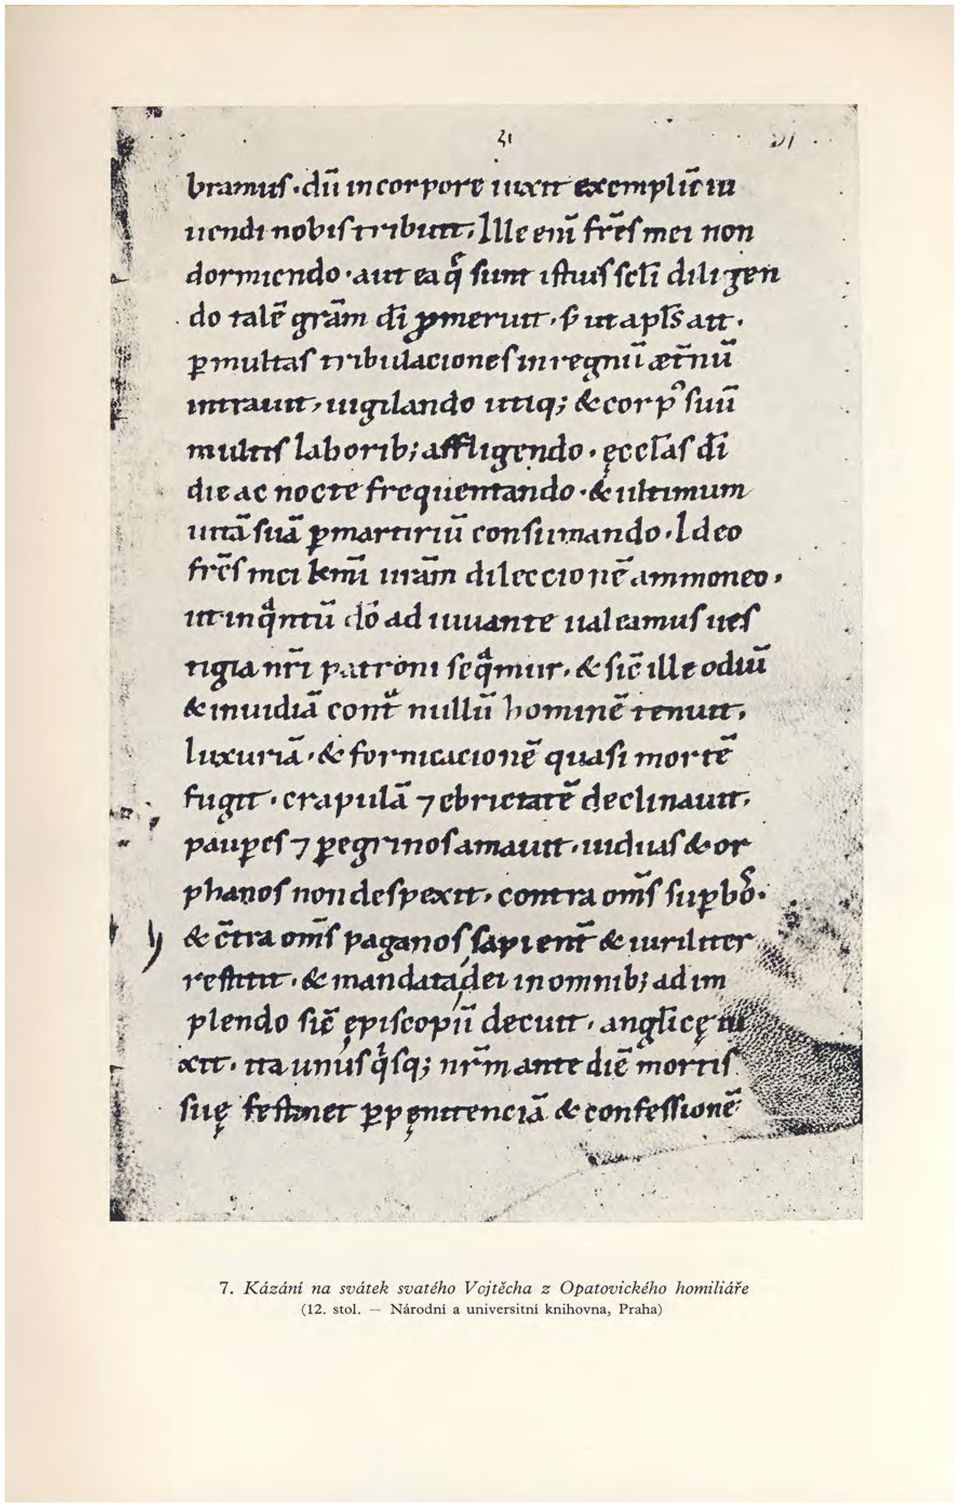 21
bramuſ. dū in corpore uixit exemplū ui
uendi nobiſ tribuit; Ille eni̅ fr̅eſ mei non
dormiendo. aut ea q̨ ſunt iſtiuſ ſcl̅i diligen
do talē gr̅am dı̅ ꝓmeruit. ut apl̅s ait.
ꝑ multaſ tribulacioneſ in regnū æt̅nū
intrauit, uigilando utiq; & corpꝰ ſuū
multiſ laborib; affligendo. ęccl̅aſ dı̅
die ac nocte frequentando. & ultimum
uitā ſuā ꝑ martiriū conſumando. Ideo
fr̅eſ mei km̅i ur̅am dileccionē ammoneo.
ut in qͣntū dō adiuuante ualeamuſ ueſ
tigia nr̅i patroni ſeqͣmur. & ſic̅ ille odiū
& inuidiā cont̅ nullū hominē tenuit,
luxuriā. & fornicacionē quaſi mortē
fugit. crapulā ⁊ ebrietatē declinauit.
pauꝑeſ ⁊ ꝑegrinoſ amauit. uiduaſ & or
phanoſ non deſpexit. contra om̅ſ ſuꝑboſ.
& c̅tra om̅ſ paganoſ ſapient̅ & uiriliter
reſtitit. & mandata dei in omnib; ad im
plendo ſic̅ ępiſcopū decuit. angl̅icę ui
xit. ita unuſ qͥſq; nr̅m ante diē mortiſ
ſuę feſtinet ꝑ pęnitenciā & confeſſionē
7. Kázání na svátek svatého Vojtěcha z Opatovického homiliáře
(12. stol. — Národní a universitní knihovna, Praha)